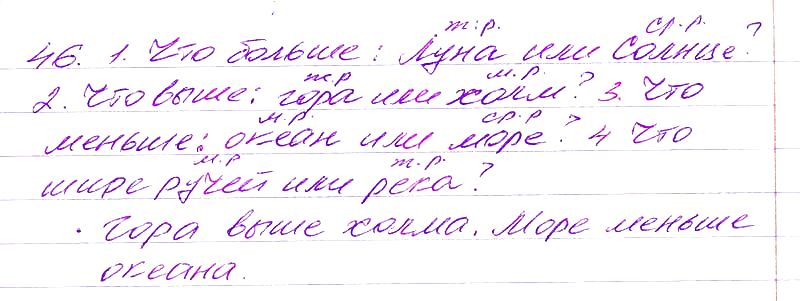 ж.р. ср.р.
46. 1. Что больше: Луна или Солнце?
ж.р м.р.
2. Что выше: гора или холм? 3. Что
м.р. ср.р
меньше: океан или море? 4 Что
м.р ж.р.
шире ручей или река?
. Гора выше холма. Море меньше
океана.